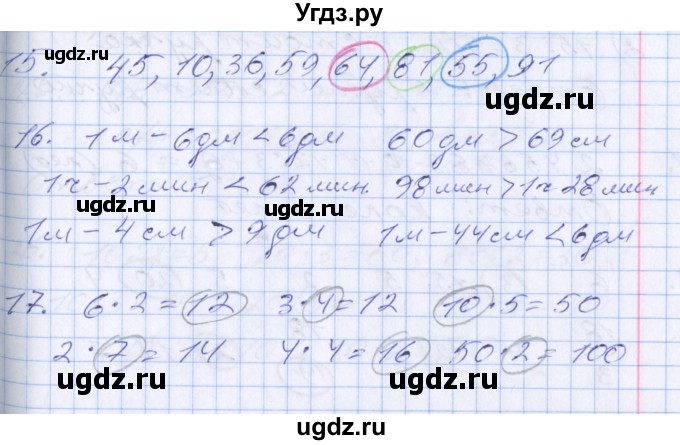 Угдз.ру
15. 45, 10, 36, 59, 64, 81, 55, 91
ugdz.ru
ugdz.ru
ugdz.ru
16. 1м - 6дм < 6дм 60дм > 69см
1ч - 2мин < 62мин. 98мин > 1ч 28мин
ugdz.ru
ugdz.ru
1м - 4см > 9дм 1м - 44см < 6дм
17. 6·2=12 3·4=12 10·5=50
ugdz.ru
2·7=14 4·4=16 50·2=100
ugdz.ru
ugdz.ru
ugdz.ru